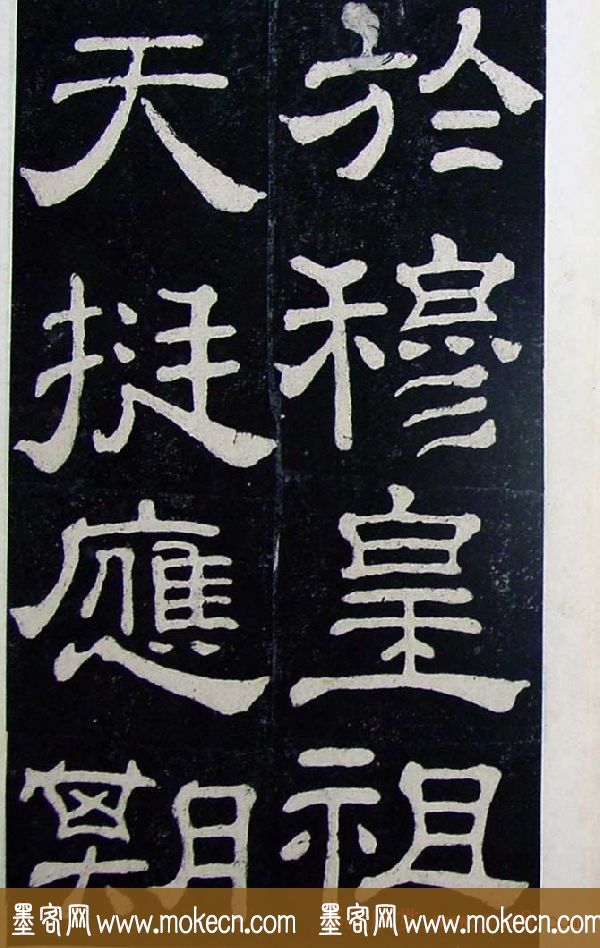 於穆皇祖
天挺應期
墨客网 www.mokecn.com 墨客网 www.mokecn.com